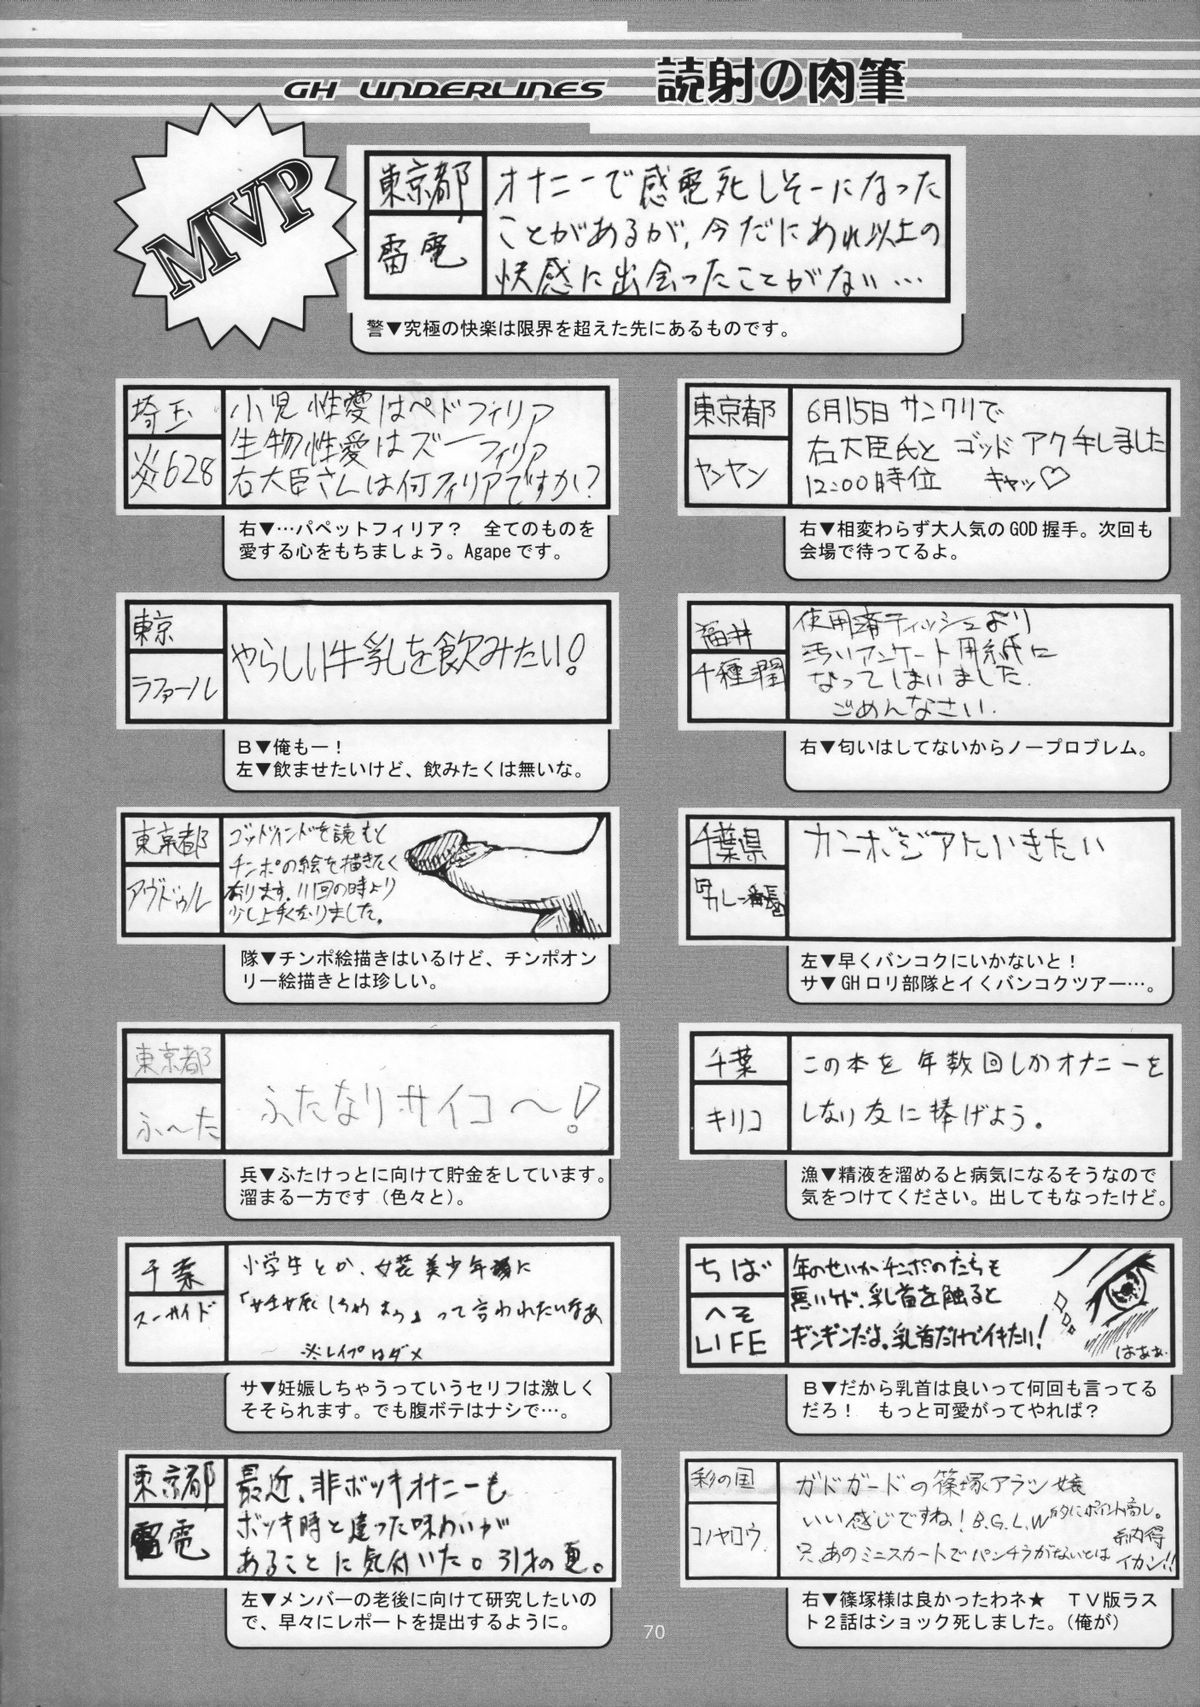 GH UNDERLINES 読射の肉筆
MVP
東京都
雷電
オナニーで感電死しそーになった
ことがあるが、今だにあれ以上の
快感に出会ったことがない…
警▼究極の快楽は限界を超えた先にあるものです。
埼玉
炎628
小児性愛はペドフィリア
生物性愛はズーフィリア
右大臣さんは何フィリアですか?
右▼…パペットフィリア? 全てのものを
愛する心をもちましょう。Agapeです。
東京都
ヤンヤン
6月15日 サンクリで
右大臣氏と ゴッド アク手しました
12:00時位 キャッ♡
右▼相変わらず大人気のGOD握手。次回も
会場で待ってるよ。
東京
ラファール
やらしい牛乳を飲みたい!
B▼俺もー!
左▼飲ませたいけど、飲みたくは無いな。
福井
千種潤
使用済ティッシュより
汚いアンケート用紙に
なってしまいました
ごめんなさい.
右▼匂いはしてないからノープロブレム。
東京都
アヴドゥル
ゴッドハンドを読むと
チンポの絵を描きたく
なります。111回の時より
少し上手くなりました。
隊▼チンポ絵描きはいるけど、チンポオン
リー絵描きとは珍しい。
東京都
ふ〜た
ふたなりサイコ〜!
兵▼ふたけっとに向けて貯金をしています。
溜まる一方です(色々と)。
千葉
キリコ
この本を 年数回しかオナニーを
しない友に捧げよう。
漁▼精液を溜めると病気になるそうなので
気をつけてください。出してもなったけど。
ちば
へそLIFE
年のせいかチンポのたちも
悪いケド、乳首を触ると
ギンギンだよ。乳首だけでイキたい!
はぁぁ.
B▼だから乳首は良いって何回も言ってる
だろ! もっと可愛がってやれば?
東京都
雷電
最近、非ボッキオナニーも
ボッキ時と違った味わいが
あることに気付いた。31才の夏。
左▼メンバーの老後に向けて研究したいの
で、早々にレポートを提出するように。
彩の国
コノヤロウ
ガドガードの篠塚アラン嬢
いい感じですね! B.G.L.W的にポイント高し。
只、あのミニスカートでパンチラがないとは納得
イカン!!
右▼篠塚様は良かったわネ★ TV版ラス
ト2話はショック死しました。(俺が)
70